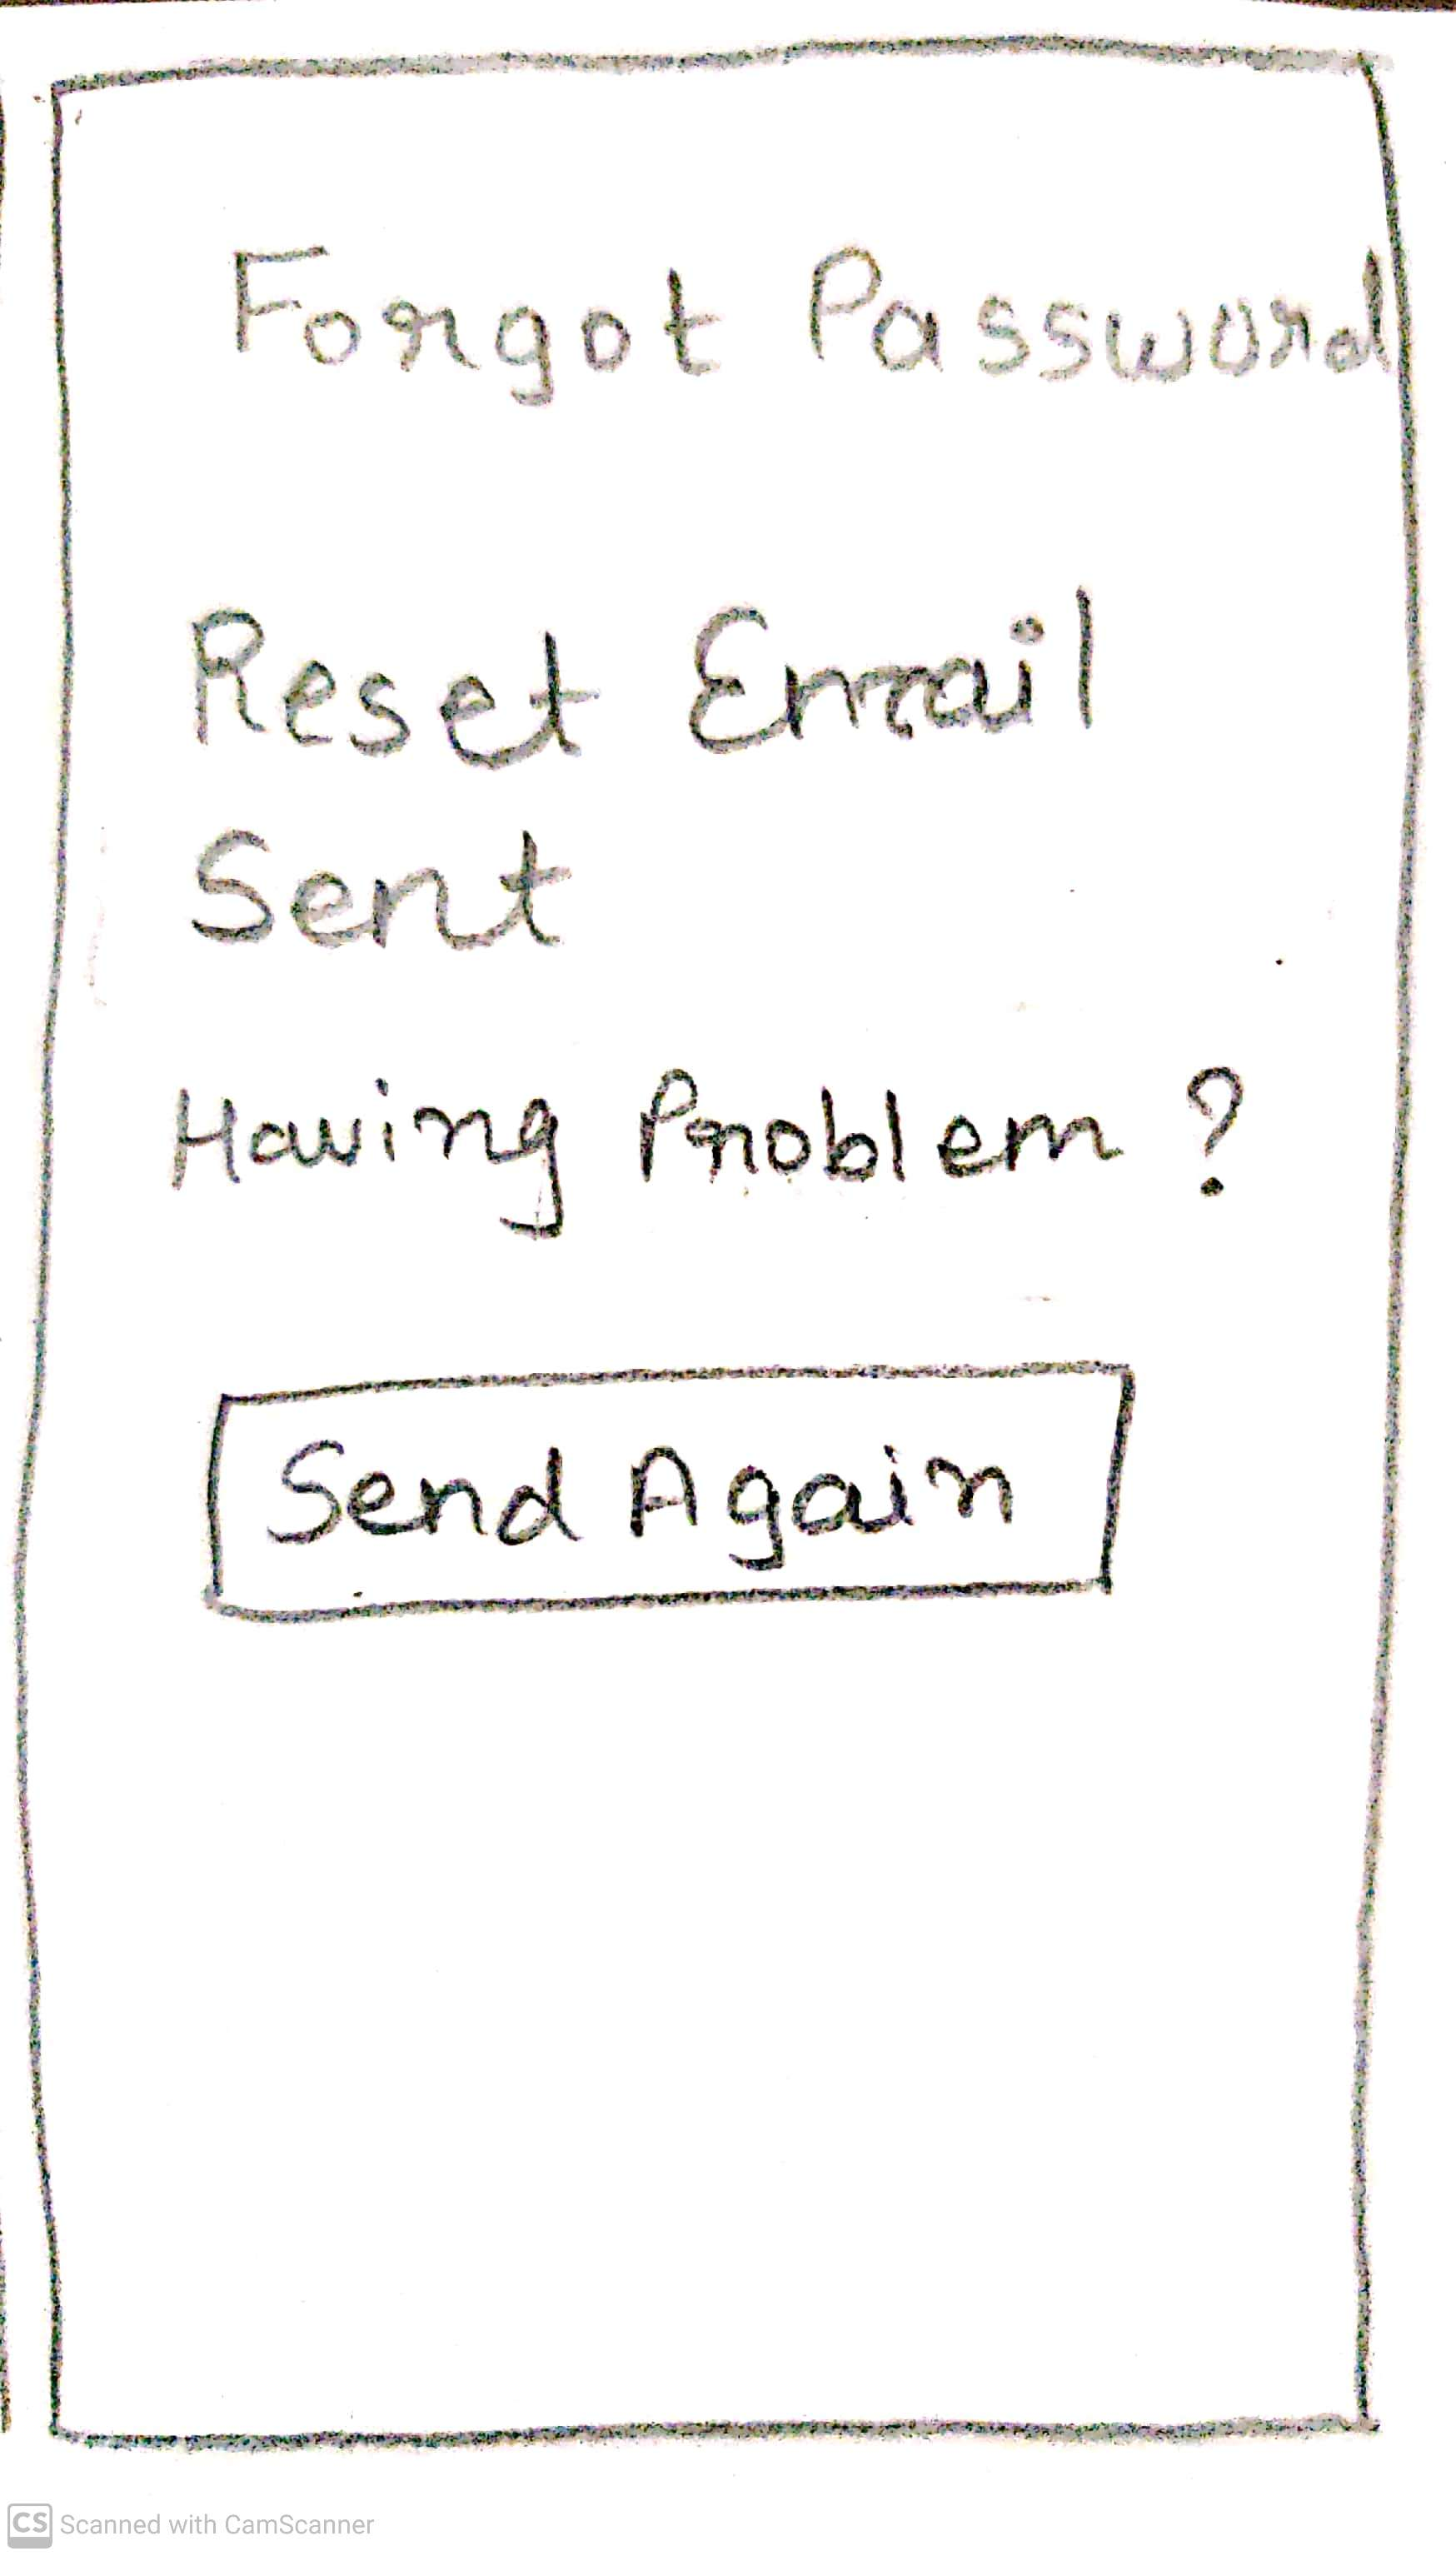 Forgot Password
Reset Email
Sent
Having Problem ?
Send Again
CS Scanned with CamScanner